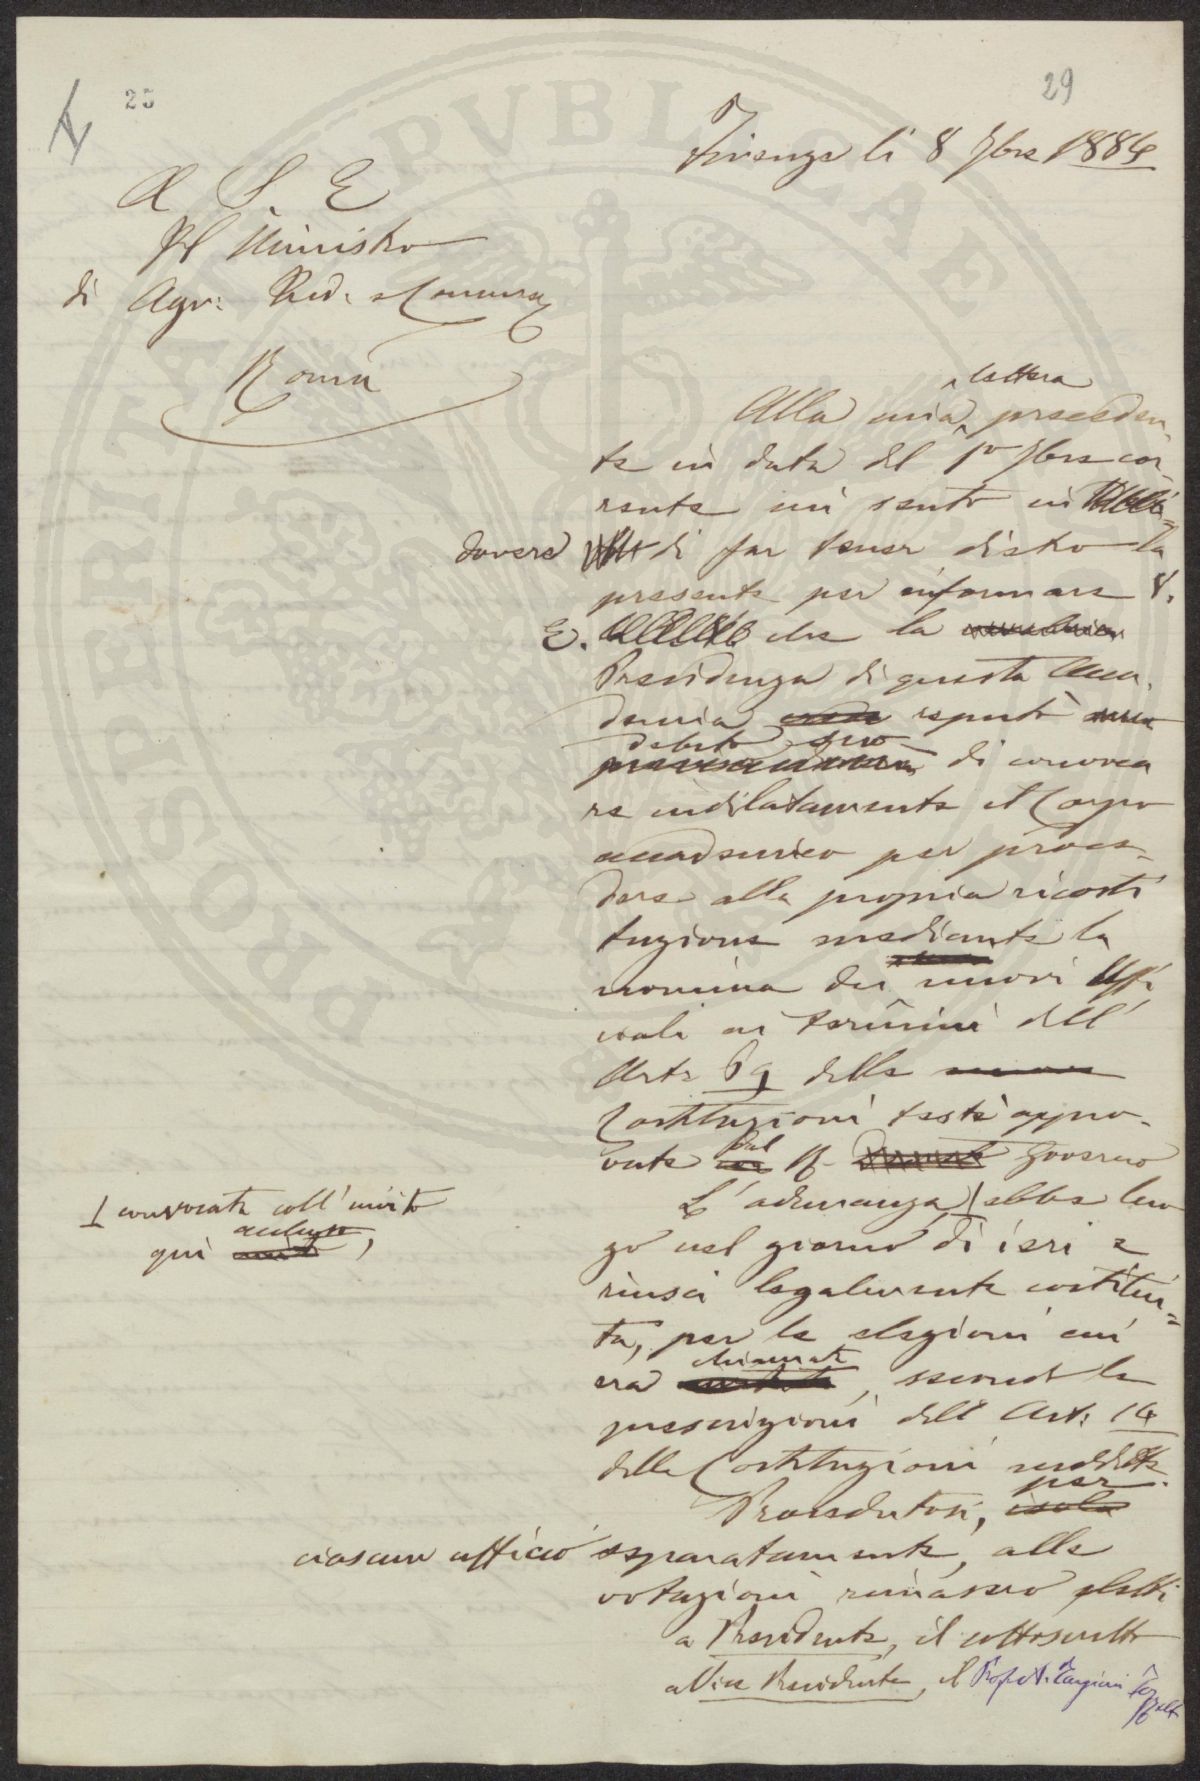 25
29
Firenze li 8 Xbre 1884
A S. E
Il Ministro
di Agr: Ind. e Commercio
Roma
lettera
Alla mia preceden
te in data del 1º Xbre cor
rente mi sento in
dovere di far tener dietro la
presente per informare V.
E. che la
Presidenza di questa Acca
demia reputò
debito suo
di convoca
re indilatamente il Corpo
accademico per proce
dere alla propria ricosti
tuzione mediante la
nomina dei nuovi Uffi
ciali ai termini dell'
Arte 69 delle
Costituzioni testè appro
vate dal R. Governo
L'adunanza, ebbe luo
convocata coll'invito
qui accluso,
go nel giorno di ieri e
riuscì legalmente costitui
ta, per le elezioni cui
era chiamata, secondo le
prescrizioni dell'Art: 14
delle Costituzioni suddette.
Procedutosi, per
ciascun ufficio separatamente, alle
votazioni rimasero eletti
a Presidente, il sottoscritto
a Vice Presidente, il Prof. A. Targioni Tozzetti